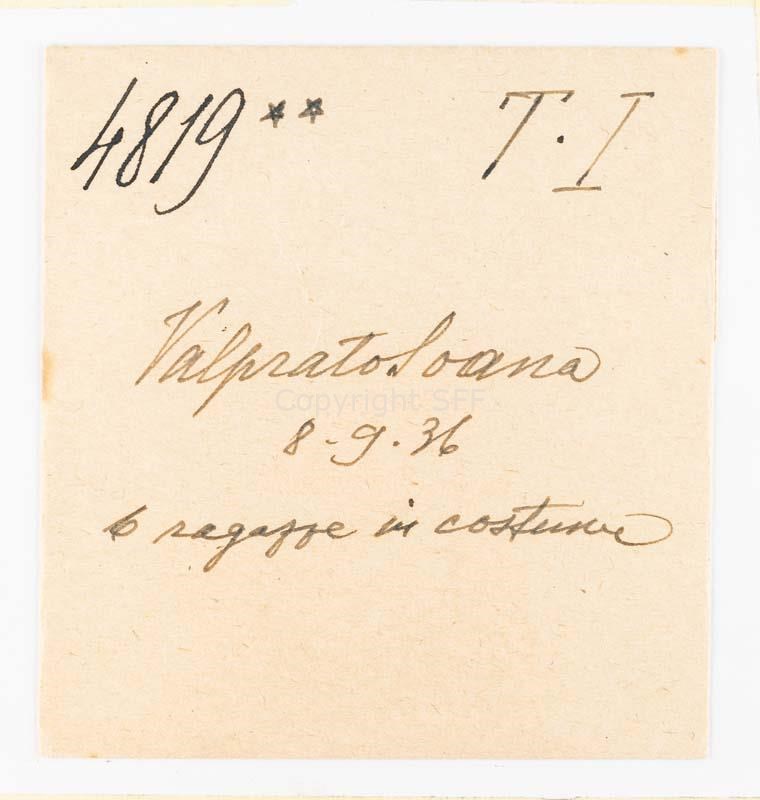 4819** T. I
Valprato Soana
Copyright SFF
8-9.36
6 ragazze in costume